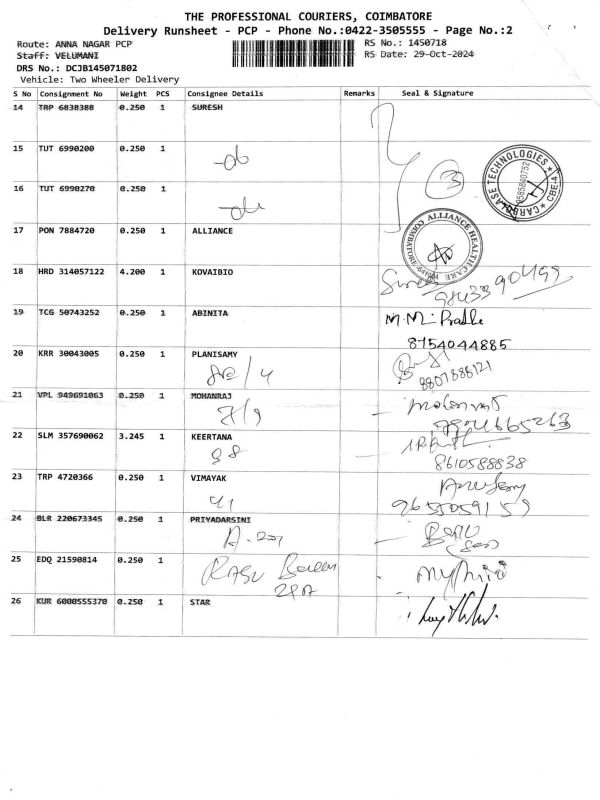 THE PROFESSIONAL COURIERS, COIMBATORE
Delivery Runsheet - PCP - Phone No.:0422-3505555 - Page No.:2
Route: ANNA NAGAR PCP
RS No.: 1450718
Staff: VELUMANI
RS Date: 29-Oct-2024
DRS No.: DCJB145071802
Vehicle: Two Wheeler Delivery
S No Consignment No Weight PCS Consignee Details Remarks Seal & Signature
14 TRP 6838388 0.250 1 SURESH
15 TUT 6990200 0.250 1
-do
3
CARBASE TECHNOLOGIES CBE-4
9585840752
16 TUT 6990270 0.250 1
-do
17 PON 7884720 0.250 1 ALLIANCE
ALLIANCE HEALTH CARE COIMBATORE
18 HRD 314057122 4.200 1 KOVAIBIO
19 TCG 50743252 0.250 1 ABINITA
8754044885
20 KRR 30043005 0.250 1 PLANISAMY
21 VPL 949691063 0.250 1 MOHANRAJ
7/9
22 SLM 357690062 3.245 1 KEERTANA
98
8610588838
23 TRP 4720366 0.250 1 VIMAYAK
9655059159
24 BLR 220673345 0.250 1 PRIYADARSINI
A-201
25 EDQ 21590814 0.250 1
26 KUR 6000555370 0.250 1 STAR